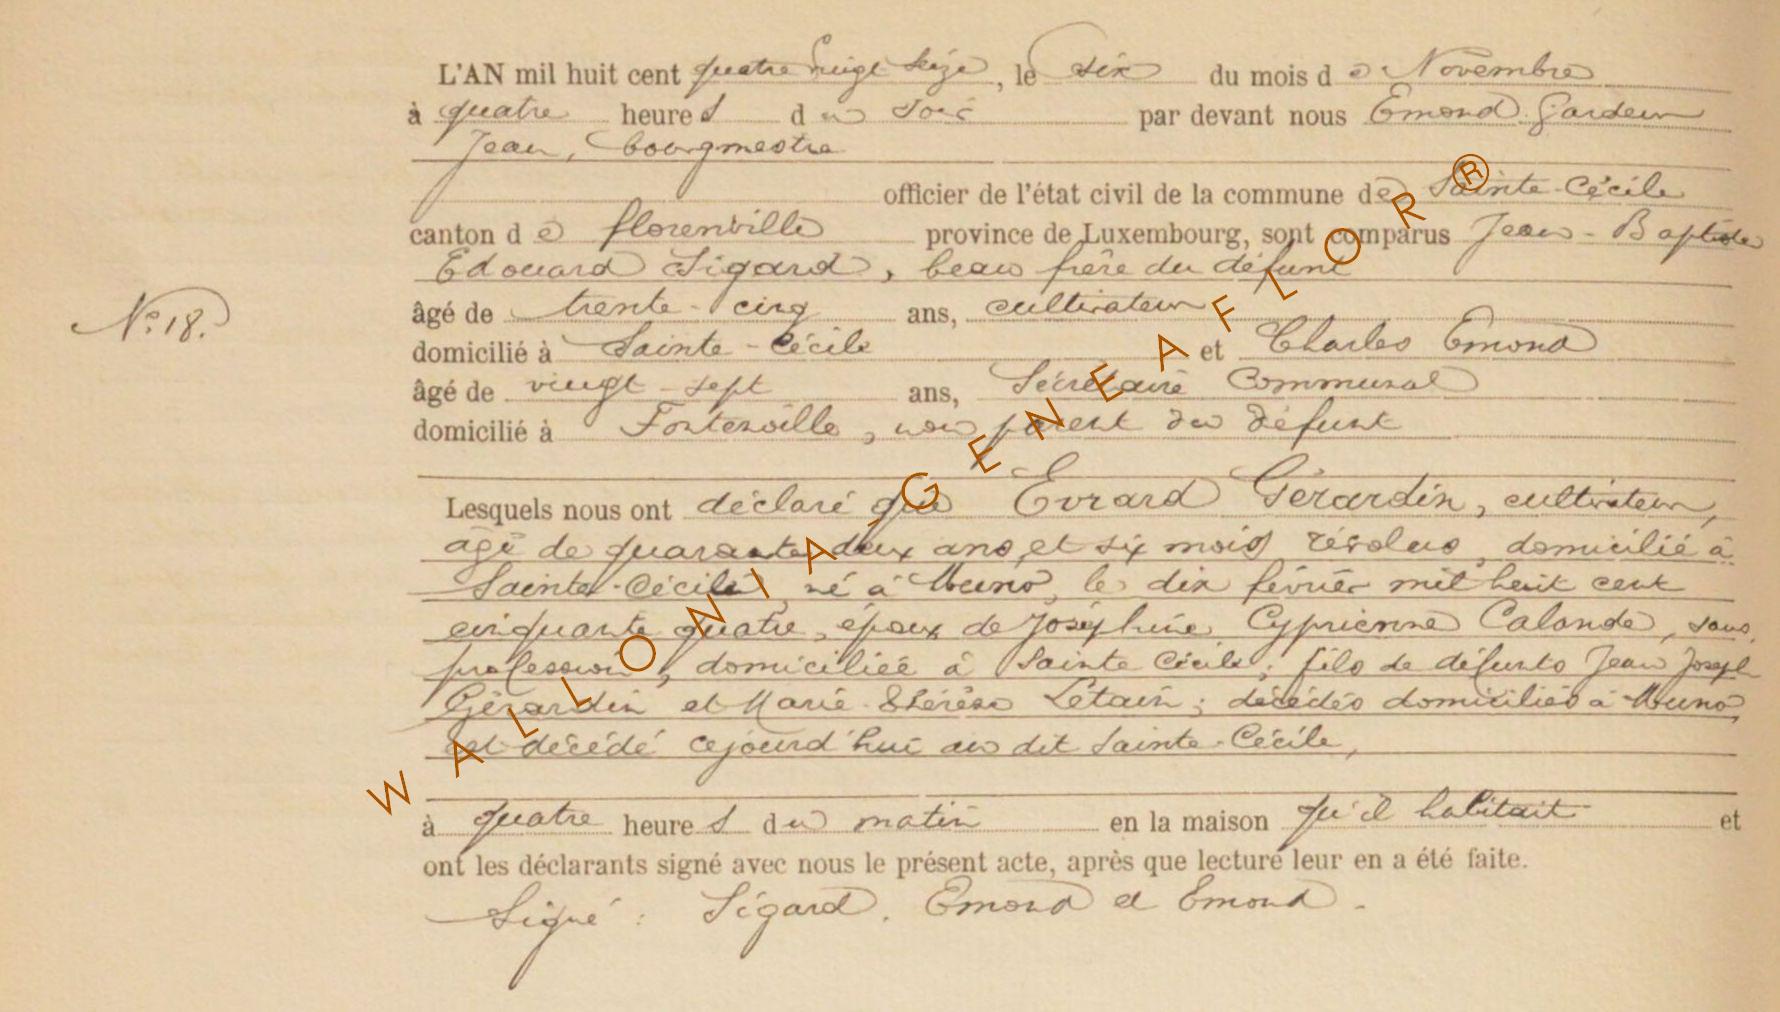 L'AN mil huit cent quatre vingt seize, le six du mois de Novembre
à quatre heures du soir par devant nous Emond Gardeur
Jean, bourgmestre
officier de l'état civil de la commune de Sainte-Cécile
canton de florenville province de Luxembourg, sont comparus Jean-Baptiste
Edouard Sigard, beau frère du défunt
N° 18.
âgé de trente-cinq ans, cultivateur
domicilié à Sainte-Cécile et Charles Emond
âgé de vingt-sept ans, Secrétaire Communal
domicilié à Fontenoille, non parent du défunt
Lesquels nous ont déclaré que Evrard Gérardin, cultivateur,
âgé de quarante deux ans et six mois révolus, domicilié à
Sainte-Cécile, né à Muno, le dix février mil huit cent
cinquante quatre, époux de Joséphine Cyprienne Calande, sans
profession, domiciliée à Sainte Cécile; fils de défunts Jean Joseph
Gérardin et Marie-Thérèse Létain; décédés domiciliés à Muno,
est décédé cejourd'hui au dit Sainte-Cécile,
à quatre heures du matin en la maison qu'il habitait et
ont les déclarants signé avec nous le présent acte, après que lecture leur en a été faite.
Signé: Sigard. Emond et Emond.
WALLONIA-GENEAFLOR®